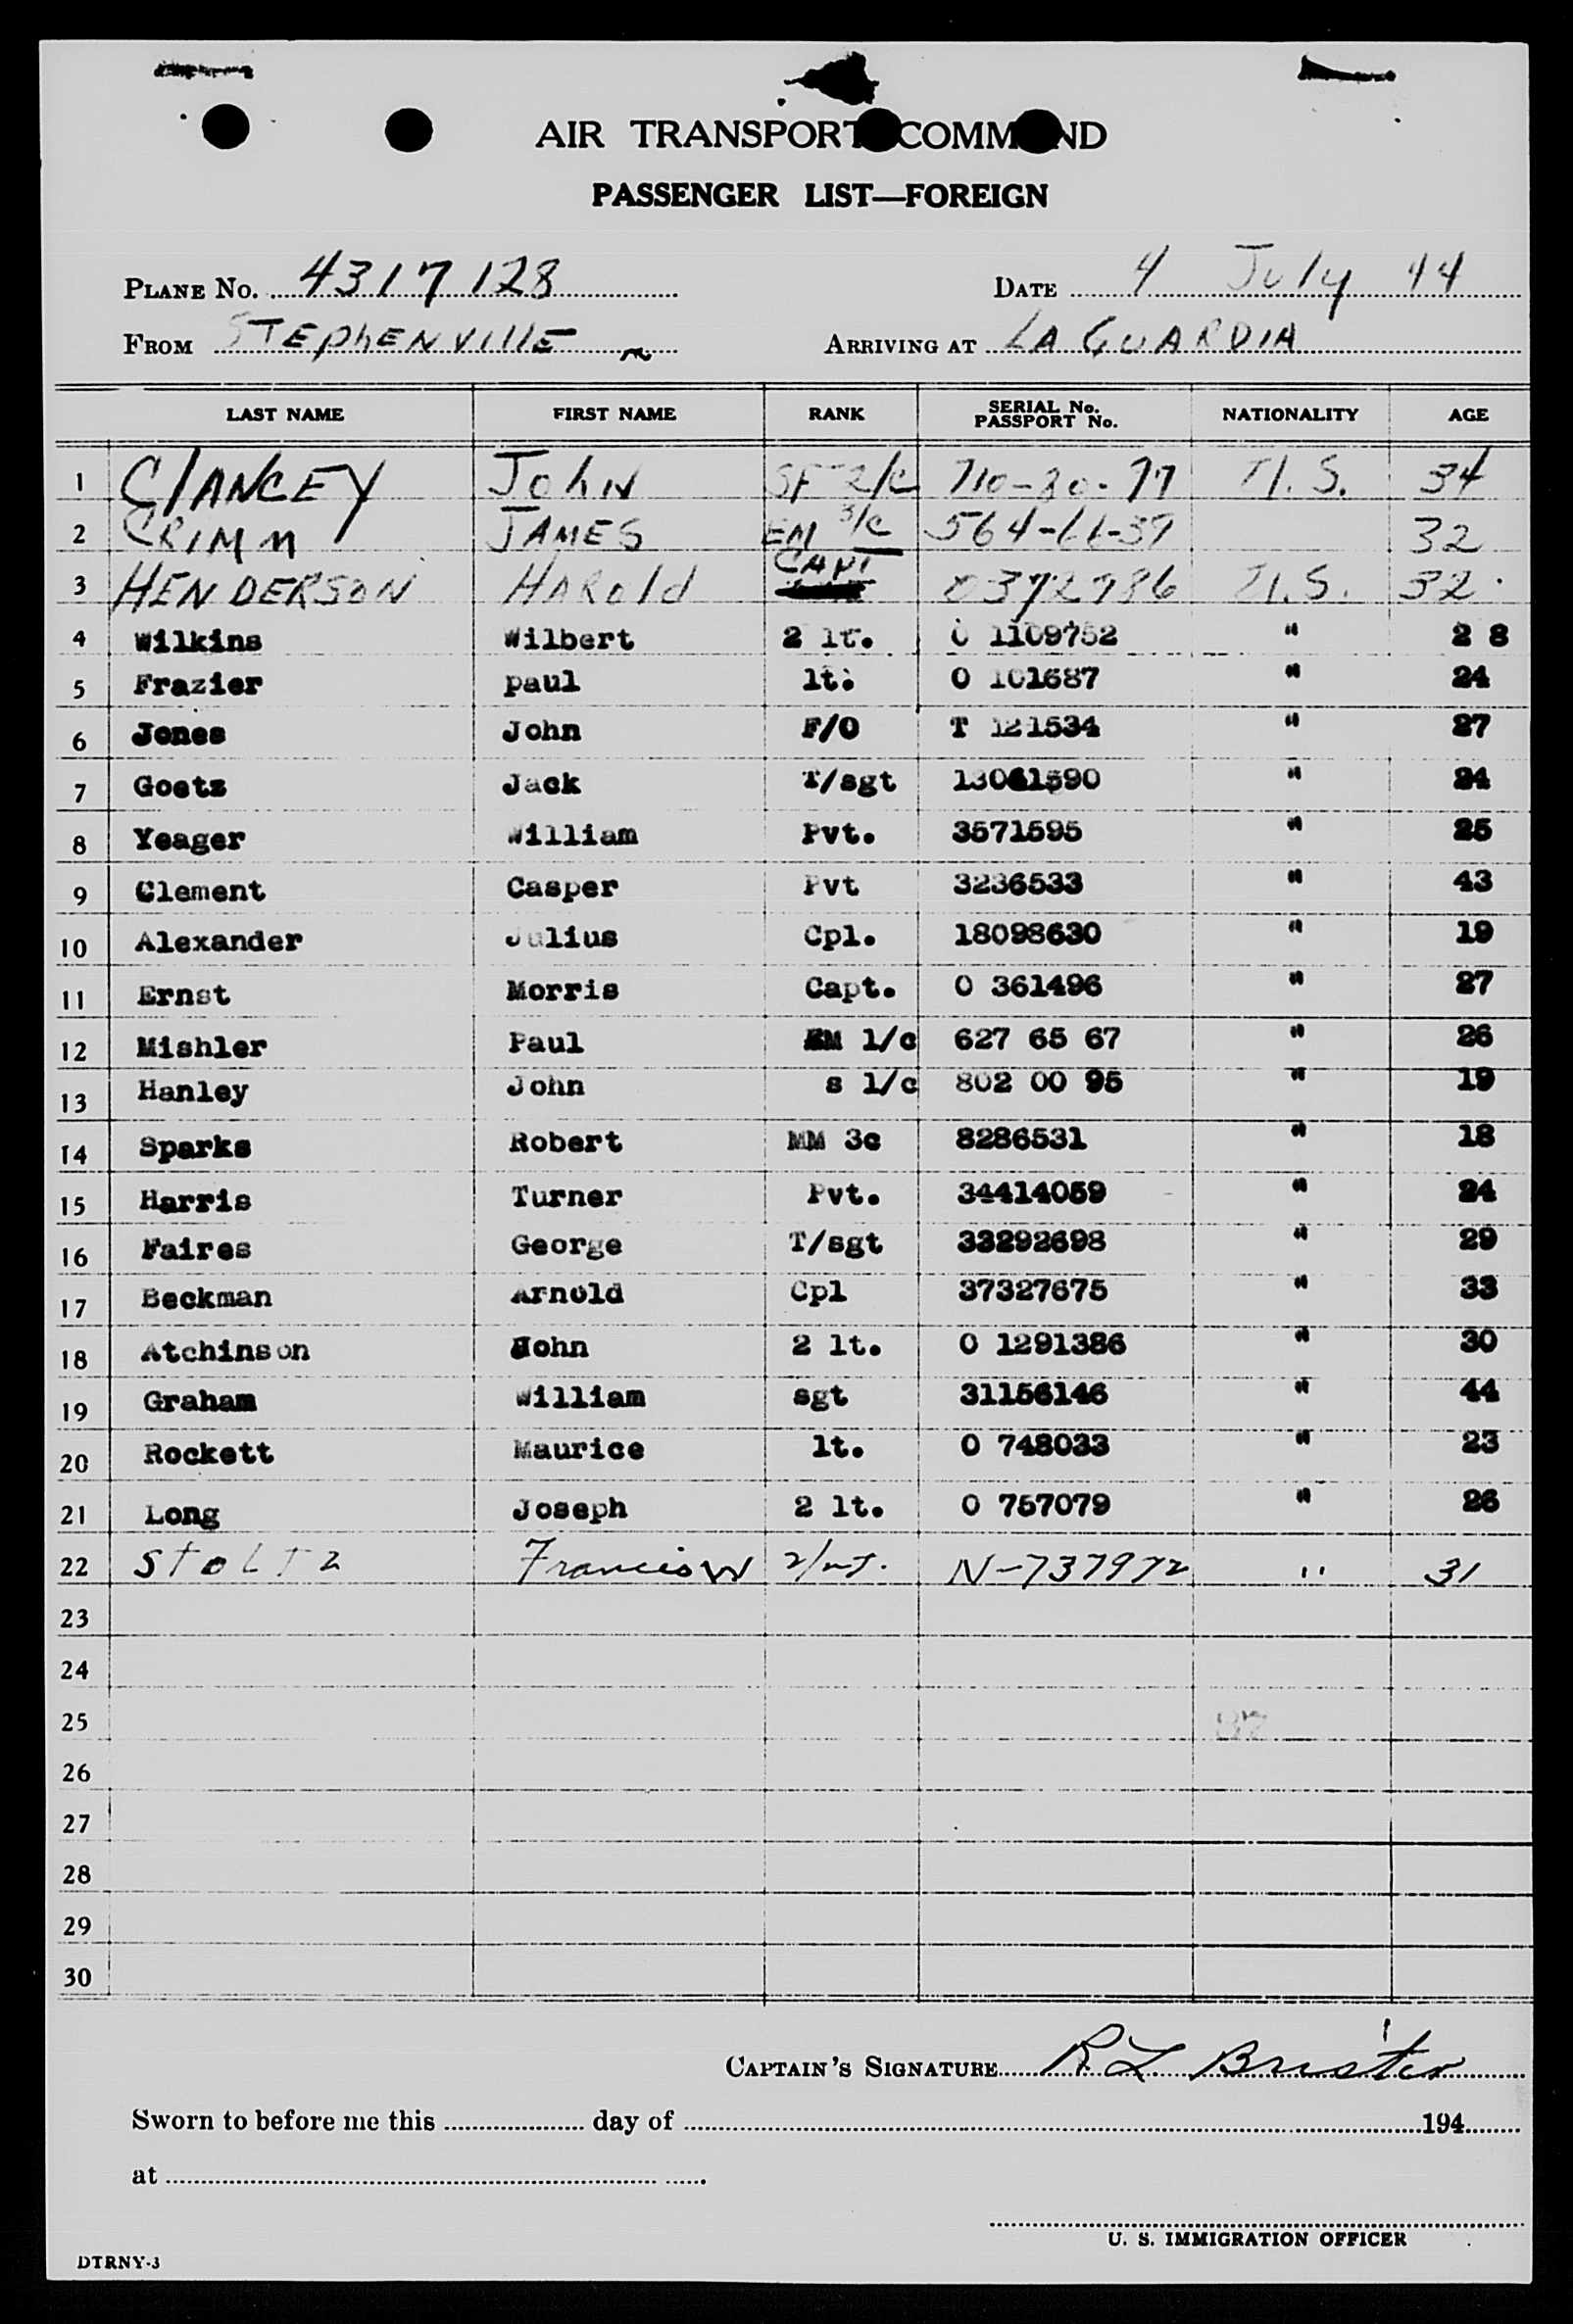 AIR TRANSPORT COMMAND
PASSENGER LIST—FOREIGN
PLANE NO. 4317128 DATE 4 July 44
FROM STEPhENVIllE ARRIVING AT LA GUARDIA
LAST NAME FIRST NAME RANK SERIAL No. PASSPORT No. NATIONALITY AGE
1 ClANCEY JohN SF 2/c 710-80-77 U.S. 34
2 CRIMM JAMES EM 3/c 564-66-39 32
3 HENDERSON HARold CAPT 0372786 U.S. 32
4 Wilkins Wilbert 2 lt. O 1109752 " 2 8
5 Frazier paul lt. O 101687 " 24
6 Jones John F/O T 121534 " 27
7 Goetz Jack T/sgt 13061590 " 24
8 Yeager William Pvt. 3571595 " 25
9 Clement Casper Pvt 3236533 " 43
10 Alexander Julius Cpl. 18098630 " 19
11 Ernst Morris Capt. O 361496 " 27
12 Mishler Paul EM 1/c 627 65 67 " 26
13 Hanley John s 1/c 802 00 95 " 19
14 Sparks Robert MM 3c 8286531 " 18
15 Harris Turner Pvt. 34414059 " 24
16 Faires George T/sgt 33292698 " 29
17 Beckman Arnold Cpl 37327675 " 33
18 Atchinson John 2 lt. O 1291386 " 30
19 Graham William sgt 31156146 " 44
20 Rockett Maurice lt. O 748033 " 23
21 Long Joseph 2 lt. O 757079 " 26
22 StoLTz Francis W N-737972 " 31
23
24
25
26
27
28
29
30
CAPTAIN'S SIGNATURE R L Brister
Sworn to before me this day of 194
at
U. S. IMMIGRATION OFFICER
DTRNY-3